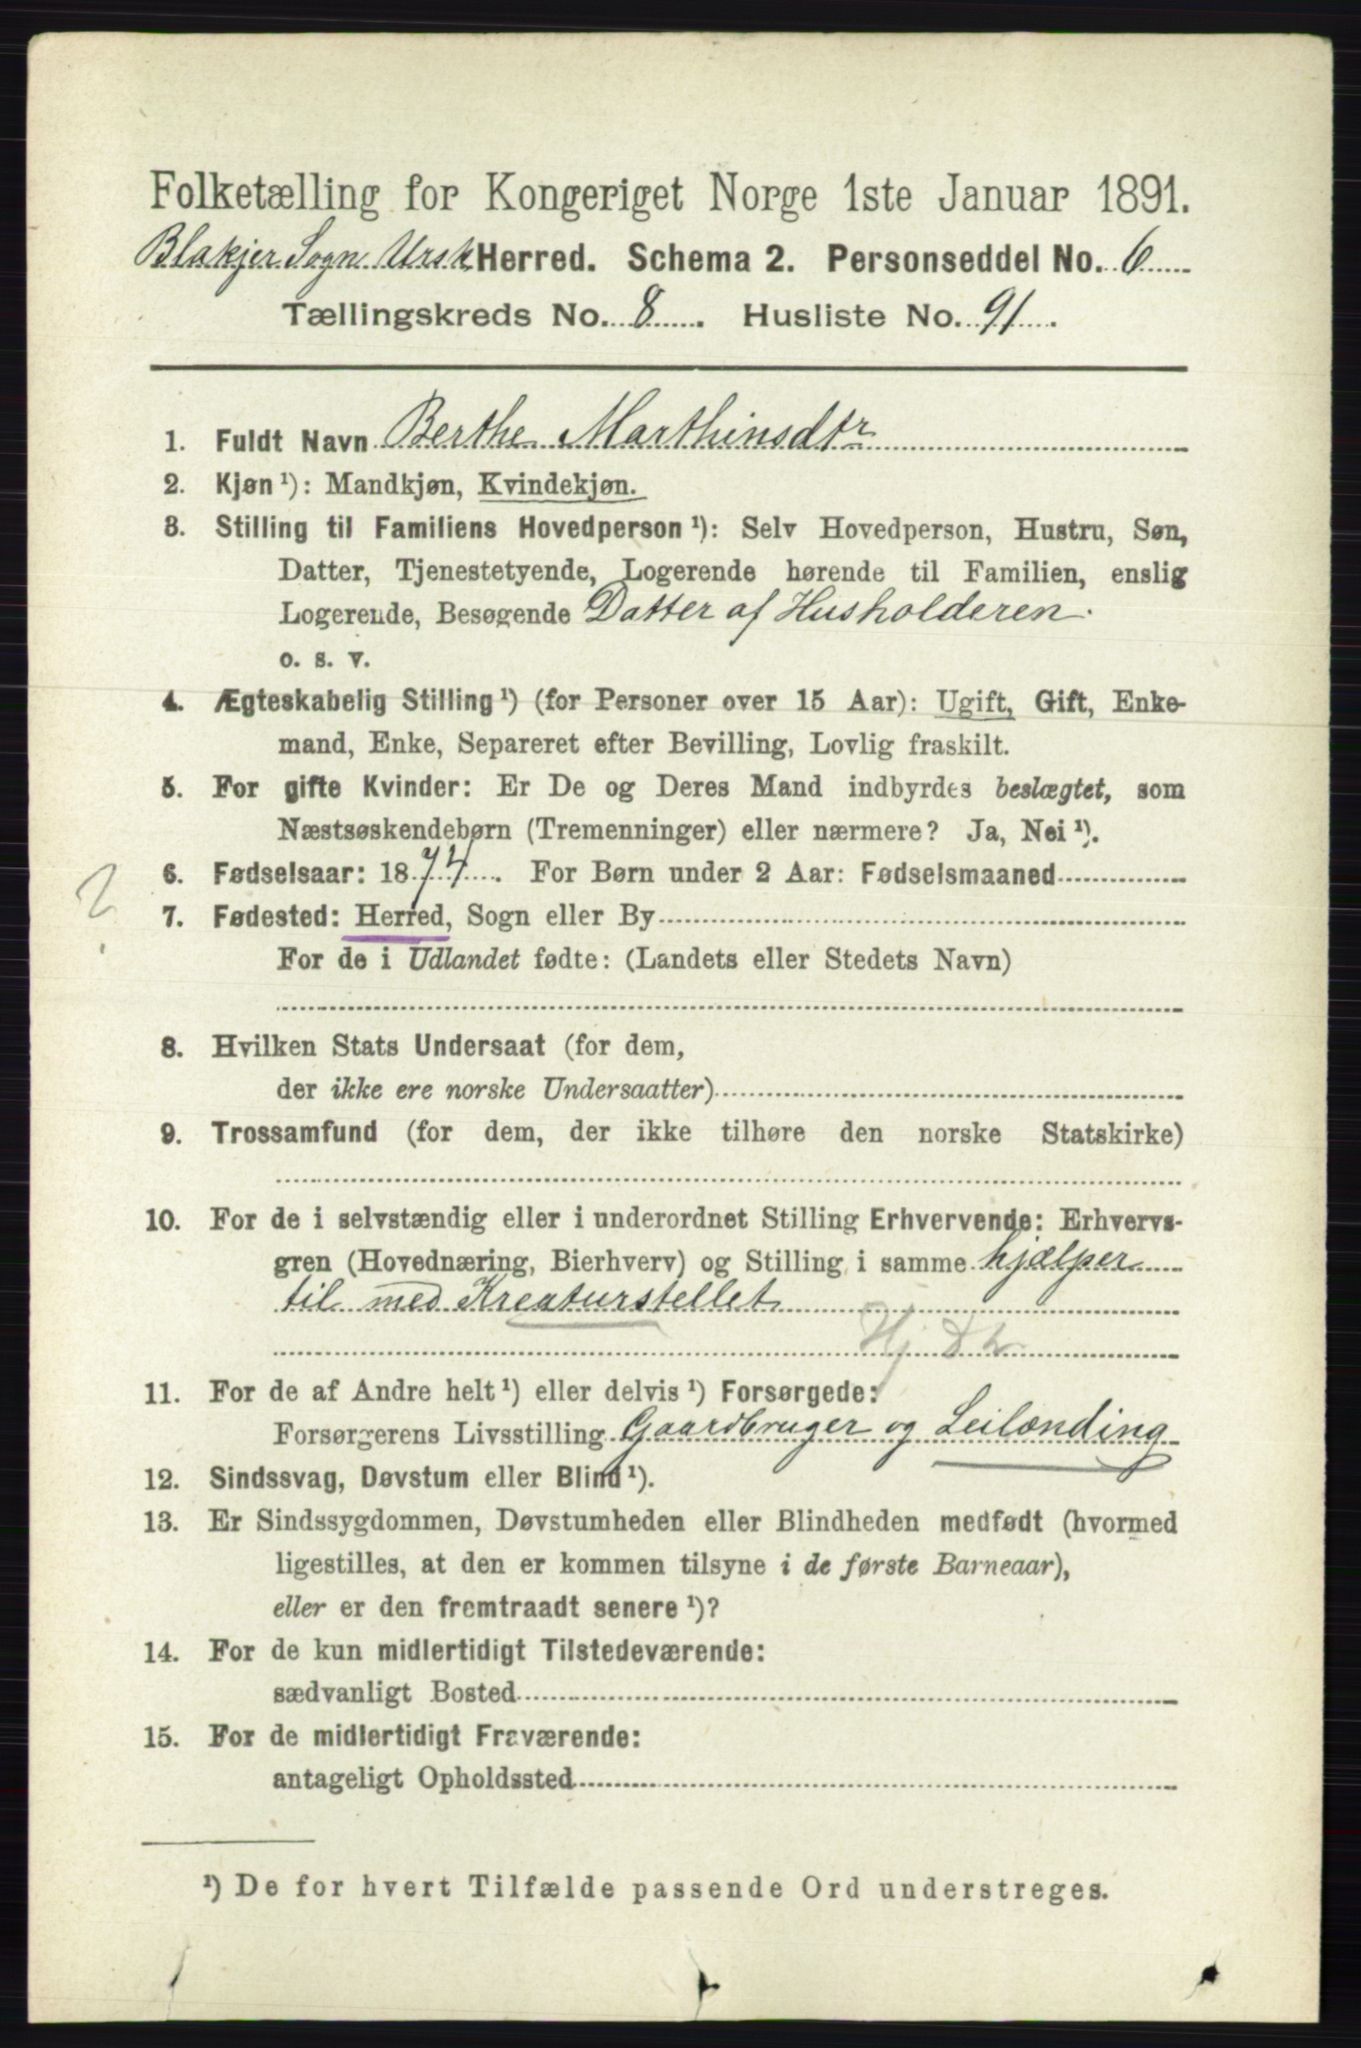 Folketælling for Kongeriget Norge 1ste Januar 1891.
Blakjer Sogn Ursk Herred. Schema 2. Personseddel No. 6
Tællingskreds No. 8. Husliste No. 91.
1. Fuldt Navn Berthe Marthinsdtr
2. Kjøn ¹): Mandkjøn, Kvindekjøn.
3. Stilling til Familiens Hovedperson ¹): Selv Hovedperson, Hustru, Søn,
Datter, Tjenestetyende, Logerende hørende til Familien, enslig
Logerende, Besøgende Datter af Husholderen.
o. s. v.
4. Ægteskabelig Stilling ¹) (for Personer over 15 Aar): Ugift, Gift, Enke-
mand, Enke, Separeret efter Bevilling, Lovlig fraskilt.
5. For gifte Kvinder: Er De og Deres Mand indbyrdes beslægtet, som
Næstsøskendebørn (Tremenninger) eller nærmere? Ja, Nei ¹).
6. Fødselsaar: 1874. For Børn under 2 Aar: Fødselsmaaned
?
7. Fødested: Herred, Sogn eller By
For de i Udlandet fødte: (Landets eller Stedets Navn)
8. Hvilken Stats Undersaat (for dem,
der ikke ere norske Undersaatter)
9. Trossamfund (for dem, der ikke tilhøre den norske Statskirke)
10. For de i selvstændig eller i underordnet Stilling Erhvervende: Erhvervs-
gren (Hovednæring, Bierhverv) og Stilling i samme hjælper
til med Kreaturstellet
Hj
11. For de af Andre helt ¹) eller delvis ¹) Forsørgede:
Forsørgerens Livsstilling Gaardbruger og Leilænding
12. Sindssvag, Døvstum eller Blind ¹).
13. Er Sindssygdommen, Døvstumheden eller Blindheden medfødt (hvormed
ligestilles, at den er kommen tilsyne i de første Barneaar),
eller er den fremtraadt senere ¹)?
14. For de kun midlertidigt Tilstedeværende:
sædvanligt Bosted
15. For de midlertidigt Fraværende:
antageligt Opholdssted
¹) De for hvert Tilfælde passende Ord understreges.